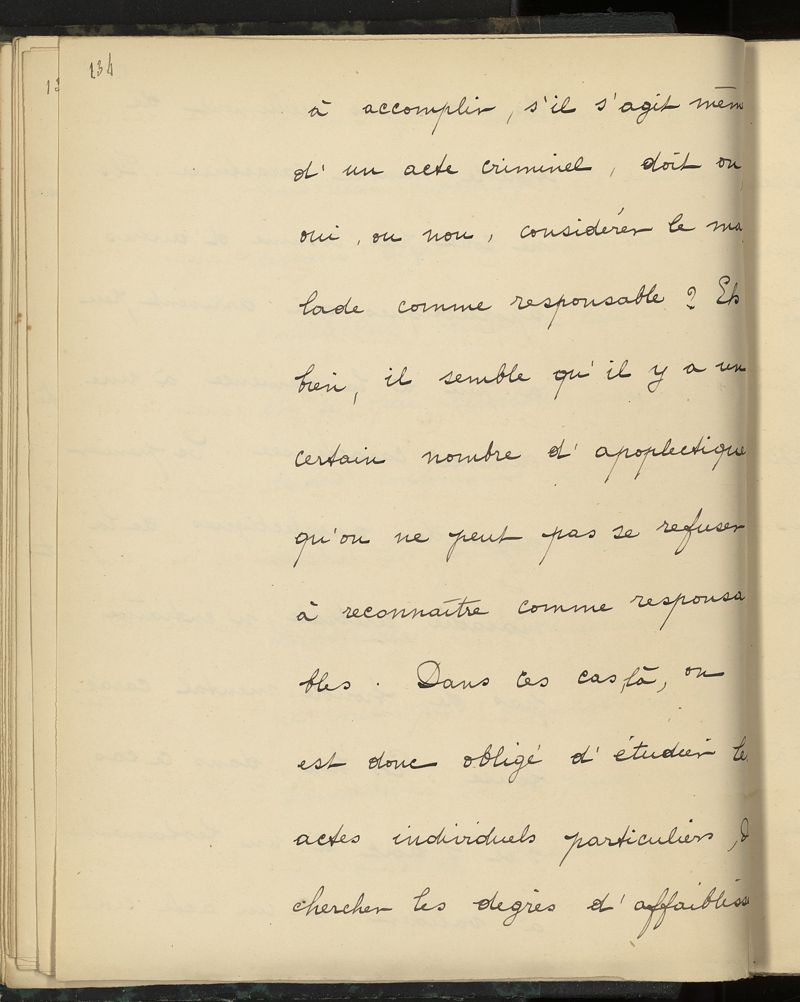 134
13
à accomplir, s'il s'agit mêm
d'un acte criminel, doit on
oui, ou non, considérer le ma
lade comme responsable ? Eh
bien, il semble qu'il y a un
certain nombre d'apoplectique
qu'on ne peut pas se refuser
à reconnaître comme responsa
bles. Dans ces cas, là, on
est donc obligé d'étudier le
actes individuels particuliers, d
chercher les degrès d'affaibliss